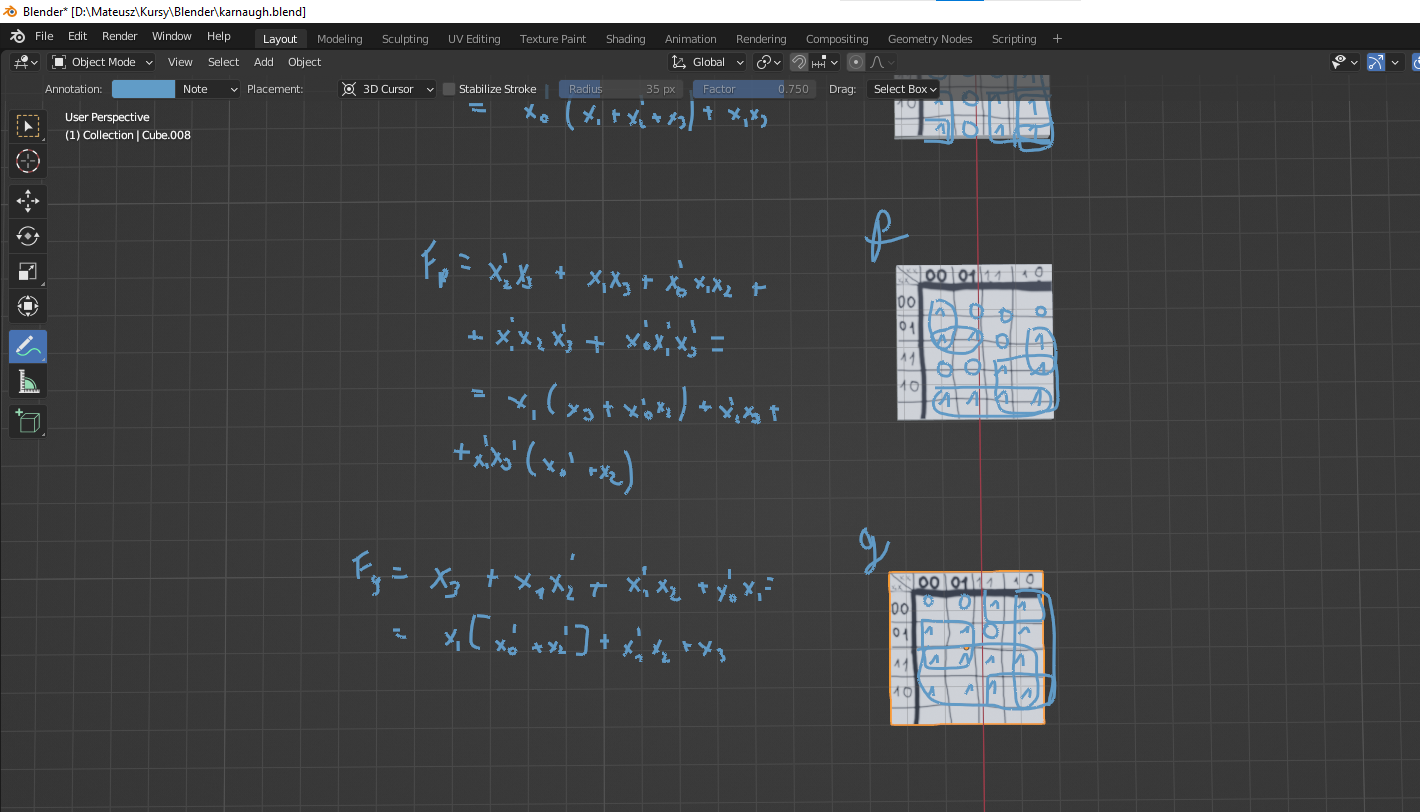 Blender* [D:\Mateusz\Kursy\Blender\karnaugh.blend]
File Edit Render Window Help Layout Modeling Sculpting UV Editing Texture Paint Shading Animation Rendering Compositing Geometry Nodes Scripting +
Object Mode View Select Add Object Global
Annotation: Note Placement: 3D Cursor Stabilize Stroke Radius 35 px Factor 0.750 Drag: Select Box
User Perspective
(1) Collection | Cube.008
= x₀ (x₁ + x₂' + x₃) + x₁x₃
10
1 0 1 1
f
Fբ = x₂'x₃ + x₁x₃ + x₀'x₁x₂ +
+ x₁'x₂x₃' + x₀'x₁'x₃' =
= x₁(x₃ + x₀'x₂) + x₂'x₃ +
+ x₁'x₃'(x₀' + x₂)
00 01 11 10
00 1 0 0 0
01 1 1 0 1
11 0 0 1 1
10 1 1 1 1
g
F₉ = x₃ + x₁x₂' + x₁'x₂ + x₀'x₁ =
= x₁[x₀' + x₂'] + x₁'x₂ + x₃
00 01 11 10
00 0 0 1 1
01 1 1 0 1
11 1 1 1 1
10 1 1 1 1